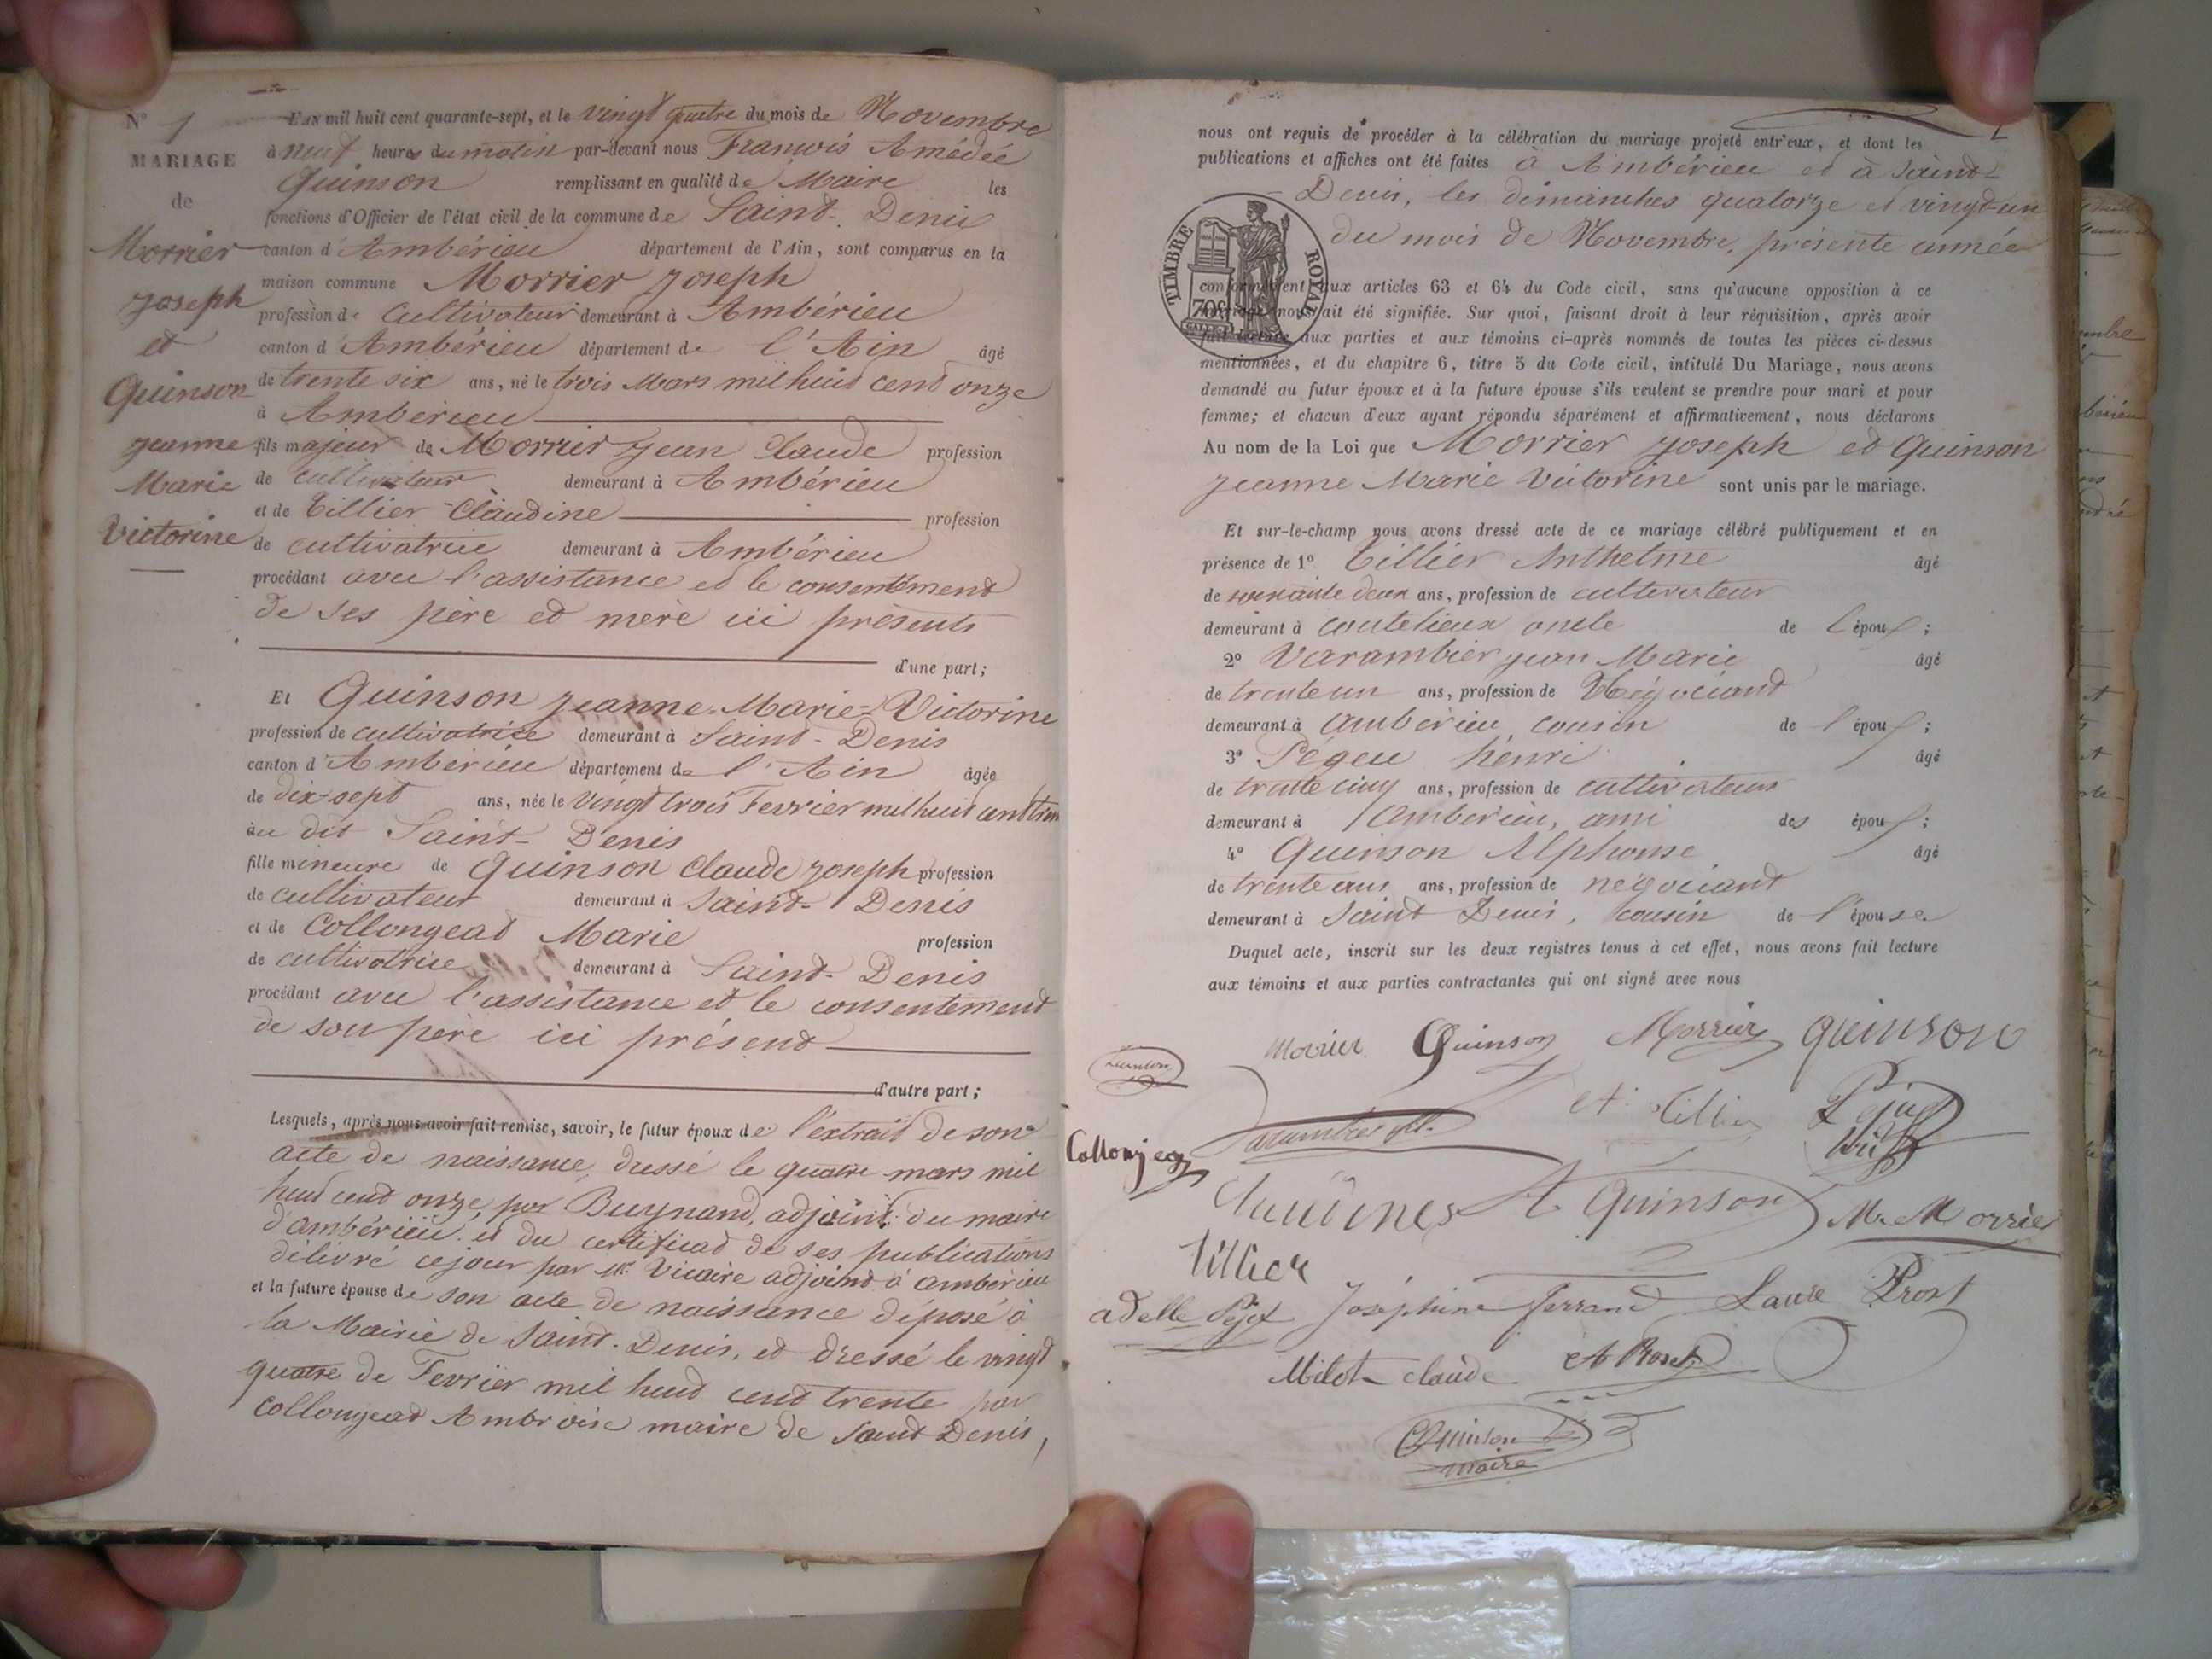 N° 1
MARIAGE
de
Morrier
Joseph
et
Quinson
Jeanne
Marie
Victorine
L'an mil huit cent quarante-sept, et le vingt quatre du mois de Novembre
à neuf heures du matin par-devant nous François Amédée
Quinson remplissant en qualité de Maire les
fonctions d'Officier de l'état civil de la commune de Saint-Denis
canton d'Ambérieu département de l'Ain, sont comparus en la
maison commune Morrier Joseph
profession de Cultivateur demeurant à Ambérieu
canton d'Ambérieu département de l'Ain âgé
de trente six ans, né le trois Mars mil huit cent onze
à Ambérieu
fils majeur de Morrier Jean Claude profession
de cultivateur demeurant à Ambérieu
et de Tillier Claudine profession
de cultivatrice demeurant à Ambérieu
procédant avec l'assistance et le consentement
de ses père et mère ici présents
d'une part;
Et Quinson Jeanne-Marie-Victorine
profession de cultivatrice demeurant à Saint-Denis
canton d'Ambérieu département de l'Ain âgée
de dix-sept ans, née le vingt trois Fevrier mil huit cent trente
au dit Saint-Denis
fille mineure de Quinson Claude Joseph profession
de cultivateur demeurant à Saint-Denis
et de Collongeat Marie profession
de cultivatrice demeurant à Saint-Denis
procédant avec l'assistance et le consentement
de son père ici présent
d'autre part;
Lesquels, après nous avoir fait remise, savoir, le futur époux de l'extrait de son
acte de naissance, dressé le quatre mars mil
huit cent onze, par Buynand, adjoint du maire
d'ambérieu, et du certificat de ses publications
délivré ce jour par Mr Vicaire adjoint à ambérieu
et la future épouse de son acte de naissance déposé à
la Mairie de Saint-Denis, et dressé le vingt
quatre de Fevrier mil huit cent trente par
Collongeat Ambroise maire de Saint Denis,
nous ont requis de procéder à la célébration du mariage projeté entr'eux, et dont les
publications et affiches ont été faites à Ambérieu et à Saint-
Denis, les dimanches quatorze et vingt-un
du mois de Novembre, présente année
TIMBRE ROYAL
70c
conformément aux articles 63 et 64 du Code civil, sans qu'aucune opposition à ce
mariage nous ait été signifiée. Sur quoi, faisant droit à leur réquisition, après avoir
fait lecture aux parties et aux témoins ci-après nommés de toutes les pièces ci-dessus
mentionnées, et du chapitre 6, titre 5 du Code civil, intitulé Du Mariage, nous avons
demandé au futur époux et à la future épouse s'ils veulent se prendre pour mari et pour
femme; et chacun d'eux ayant répondu séparément et affirmativement, nous déclarons
Au nom de la Loi que Morrier Joseph et Quinson
Jeanne Marie Victorine sont unis par le mariage.
Et sur-le-champ nous avons dressé acte de ce mariage célébré publiquement et en
présence de 1° Tillier Anthelme âgé
de soixante deux ans, profession de cultivateur
demeurant à coutelieux oncle de l'époux;
2° Varambier Jean Marie âgé
de trente un ans, profession de Négociant
demeurant à ambérieu, cousin de l'époux;
3° Pégeu henri âgé
de trente cinq ans, profession de cultivateur
demeurant à ambérieu, ami des époux;
4° Quinson Alphonse âgé
de trente ans, profession de négociant
demeurant à Saint Denis, cousin de l'épouse
Duquel acte, inscrit sur les deux registres tenus à cet effet, nous avons fait lecture
aux témoins et aux parties contractantes qui ont signé avec nous
Morrier Quinson Morrier Quinson
At Tillier
Collonjeat
A Quinson M. Morrier
Tillier
adelle Pejot Joséphine ferrand Laure Prost
Milot claude
Quinson
maire